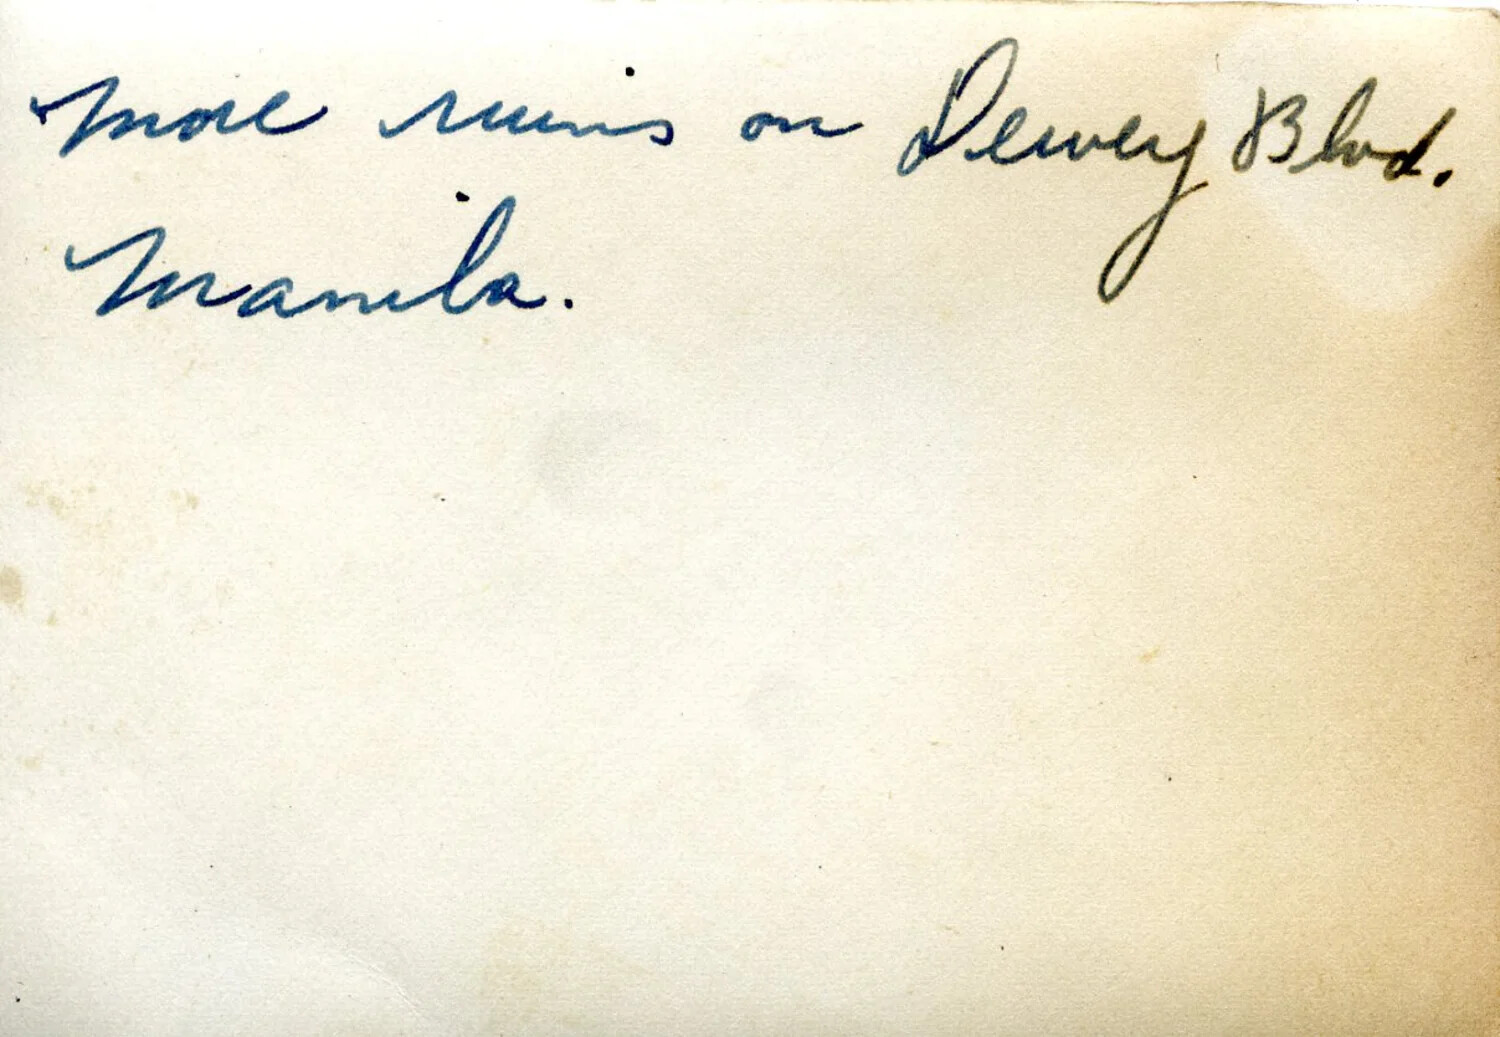 More ruins on Dewey Blvd.
Manila.